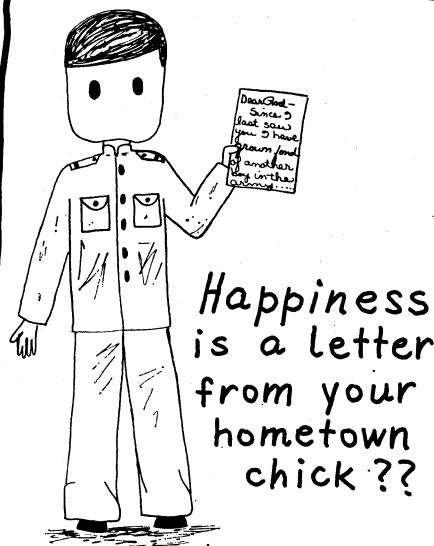 Dear
Since I
last saw
you I have
grown fond
of another
boy in the
army....
Happiness
is a letter
from your
hometown
chick ??